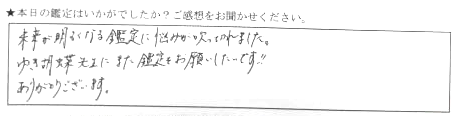 ★本日の鑑定はいかがでしたか？ご感想をお聞かせください。
未来が明るくなる鑑定に悩みが吹ってれました。
ゆき胡蝶先生にまた鑑定をお願いしたいです!!
ありがとうございます。